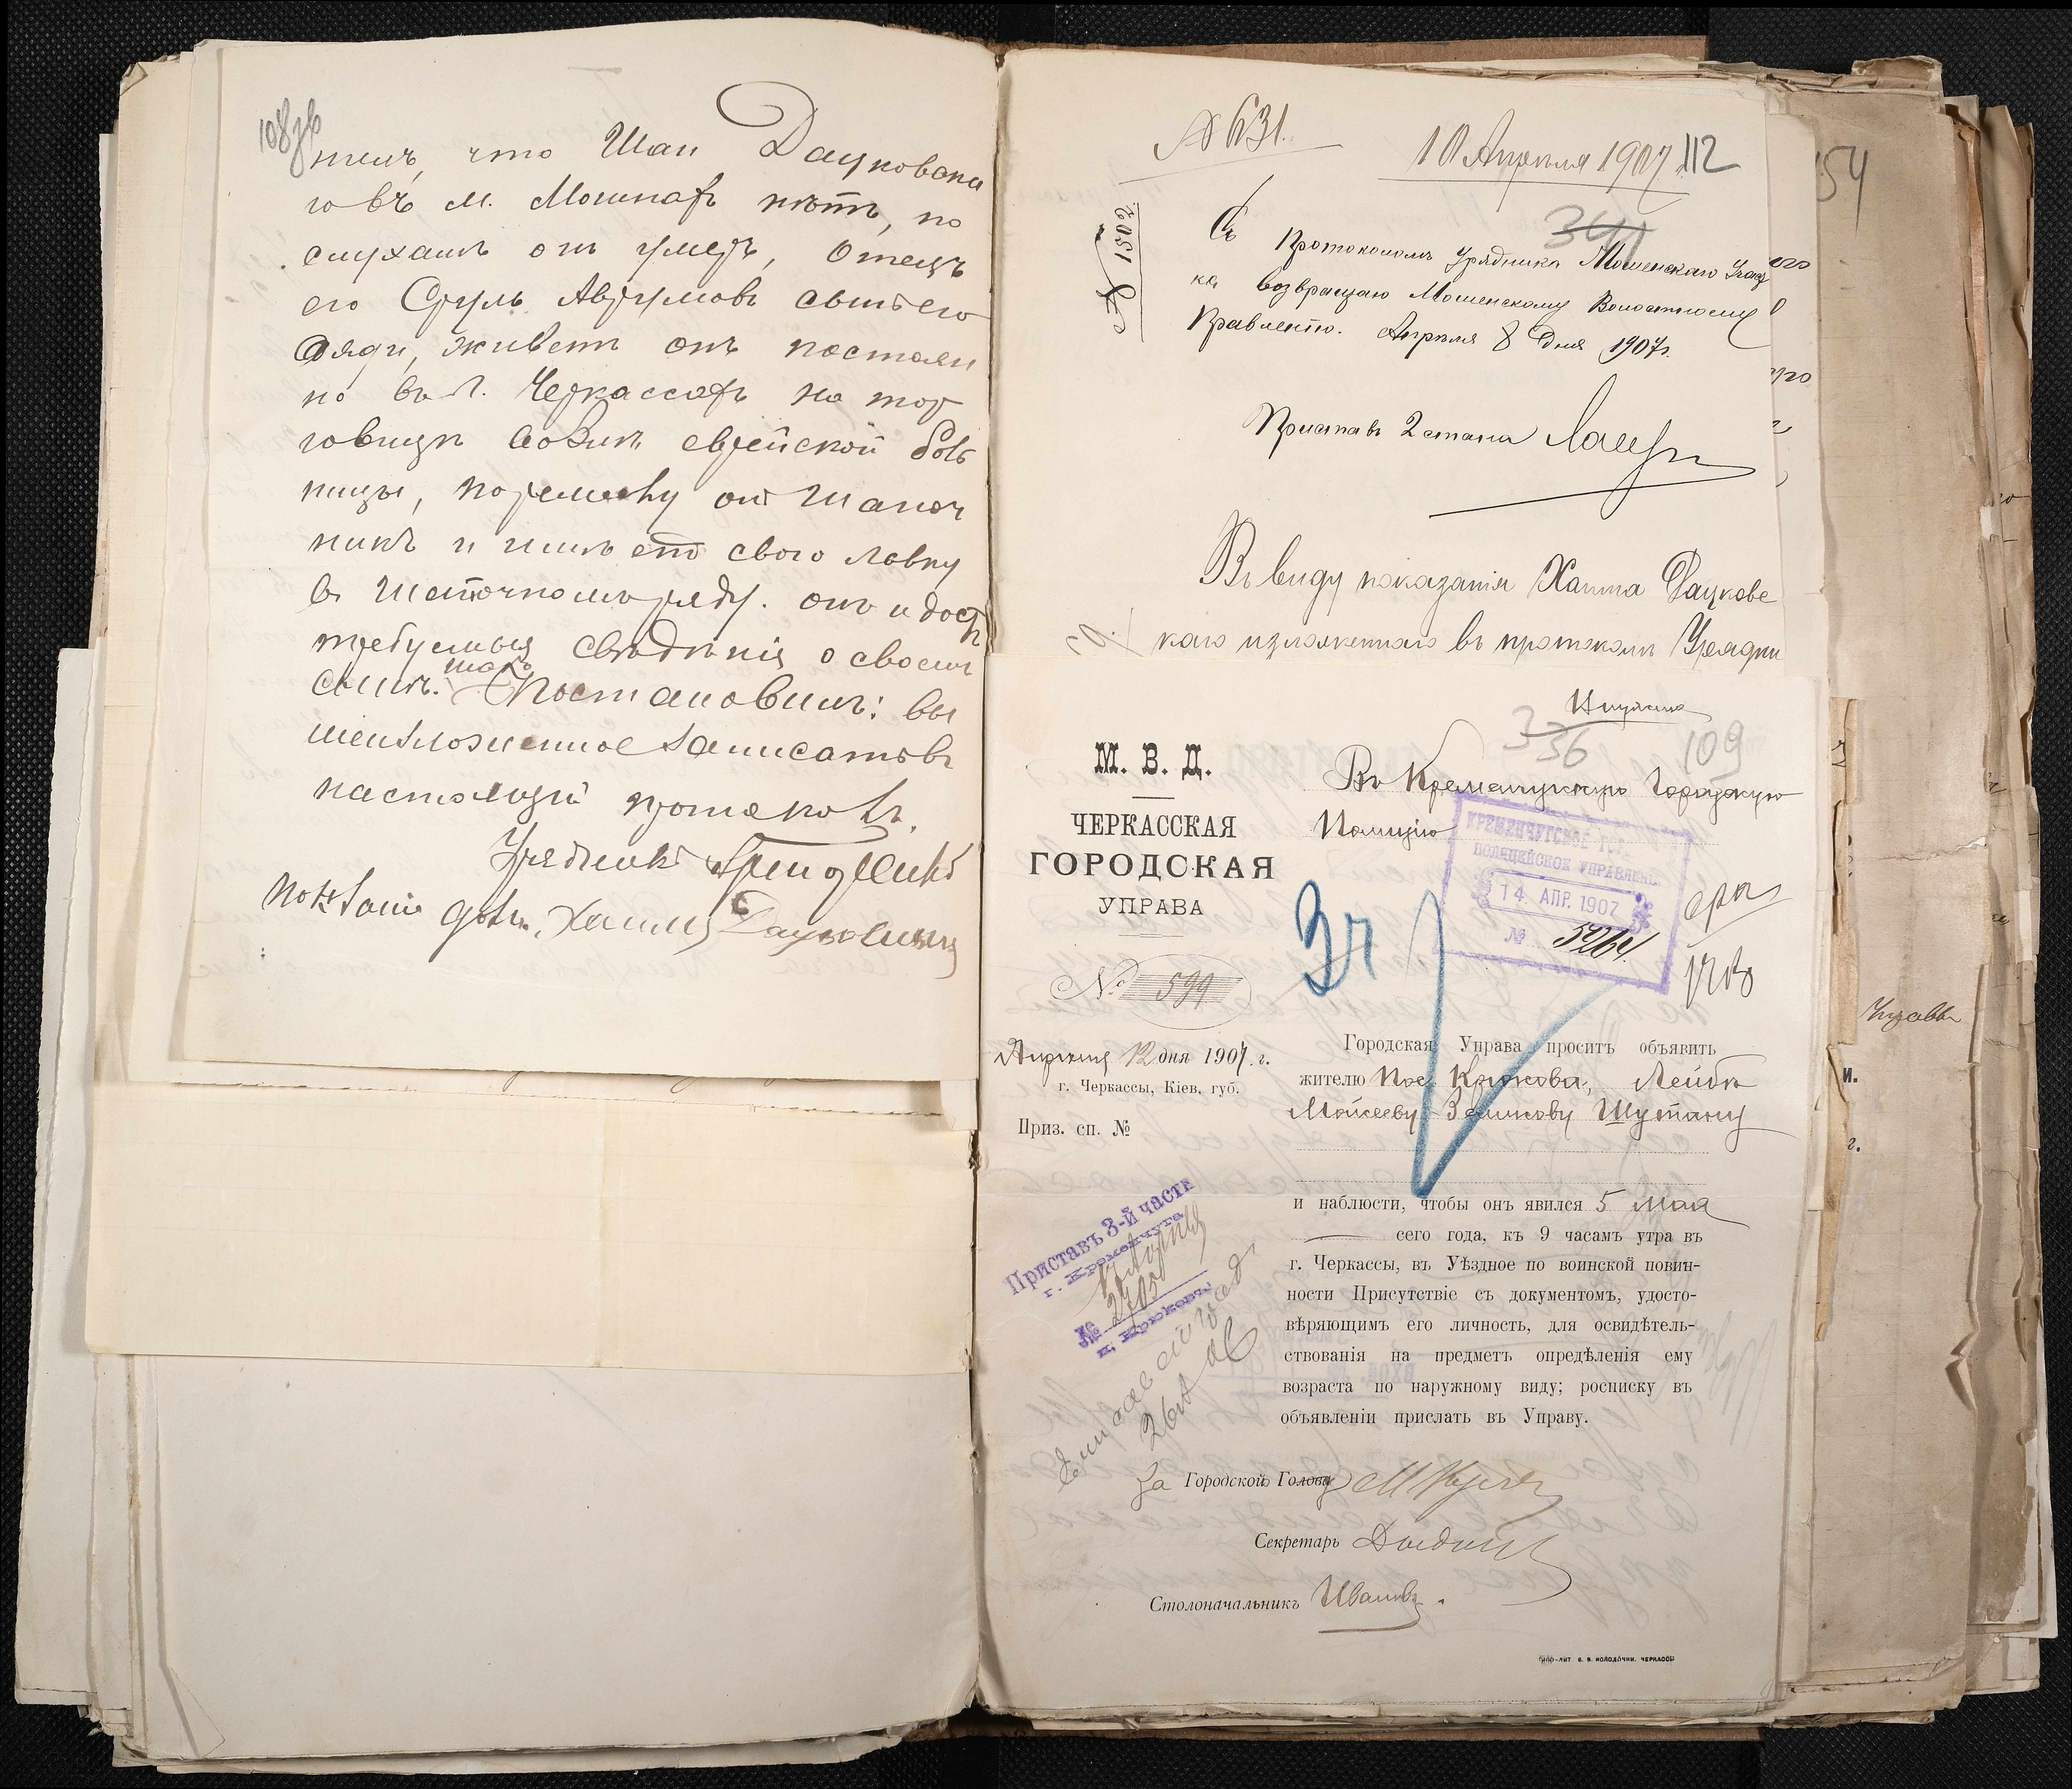 108 зв
что Шая Дауновска
го въ м. Мошнахъ нѣтъ, по
слухамъ онъ умеръ, Отецъ
его Сруль Аврумовъ сынъ его
дяди, живетъ онъ постоян
но въ г. Черкассахъ на тор
говицѣ возлѣ еврейской боль
ницы, по ремеслу онъ шапоч
никъ и имѣетъ свою лавку
въ шапочномъ ряду. онъ и дастъ
требуемыя свѣдѣнія о своемъ
сынѣ. Постановилъ: вы
шеизложенное записать въ
настоящій протоколъ.
Урядникъ
Показаніе далъ, Хаимъ
№ 631.
10 Апрѣля 1907
112
341
№ 1502
Съ протоколомъ Урядника Мошенскаго Участ
ка возвращаю Мошенскому Волостному
Правленію. Апрѣля 8 дня 1907 г.
Приставъ 2 стана
Въ виду показанія Хаима
каго изложеннаго въ протоколѣ Урядни
336
109
М. В. Д.
ЧЕРКАССКАЯ
ГОРОДСКАЯ
УПРАВА
№ 599
Апрѣля 12 дня 1907 г.
г. Черкассы, Кіев. губ.
Приз. сп. №
Въ Кременчугскую Городскую
Полицію
КРЕМЕНЧУГСКОЕ ГОР.
ПОЛИЦЕЙСКОЕ УПРАВЛЕНІЕ
14 АПР. 1907
№ 5264
3 ч
Городская Управа проситъ объявить
жителю пос. Крюкова, Лейбѣ
Мойсееву-Зеликову Шутану
и наблюсти, чтобы онъ явился 5 Мая
сего года, къ 9 часамъ утра въ
г. Черкассы, въ Уѣздное по воинской повин-
ности Присутствіе съ документомъ, удосто-
вѣряющимъ его личность, для освидѣтель-
ствованія на предметъ опредѣленія ему
возраста по наружному виду; росписку въ
объявленіи прислать въ Управу.
Приставъ 3-й части
г. Кременчуга
№ 2705
п. Крюковъ
За Городской Голова
Секретарь
Столоначальникъ Ивановъ.
ТИПО-ЛИТ В. В. КОЛОДОЧКИ. ЧЕРКАССЫ
154